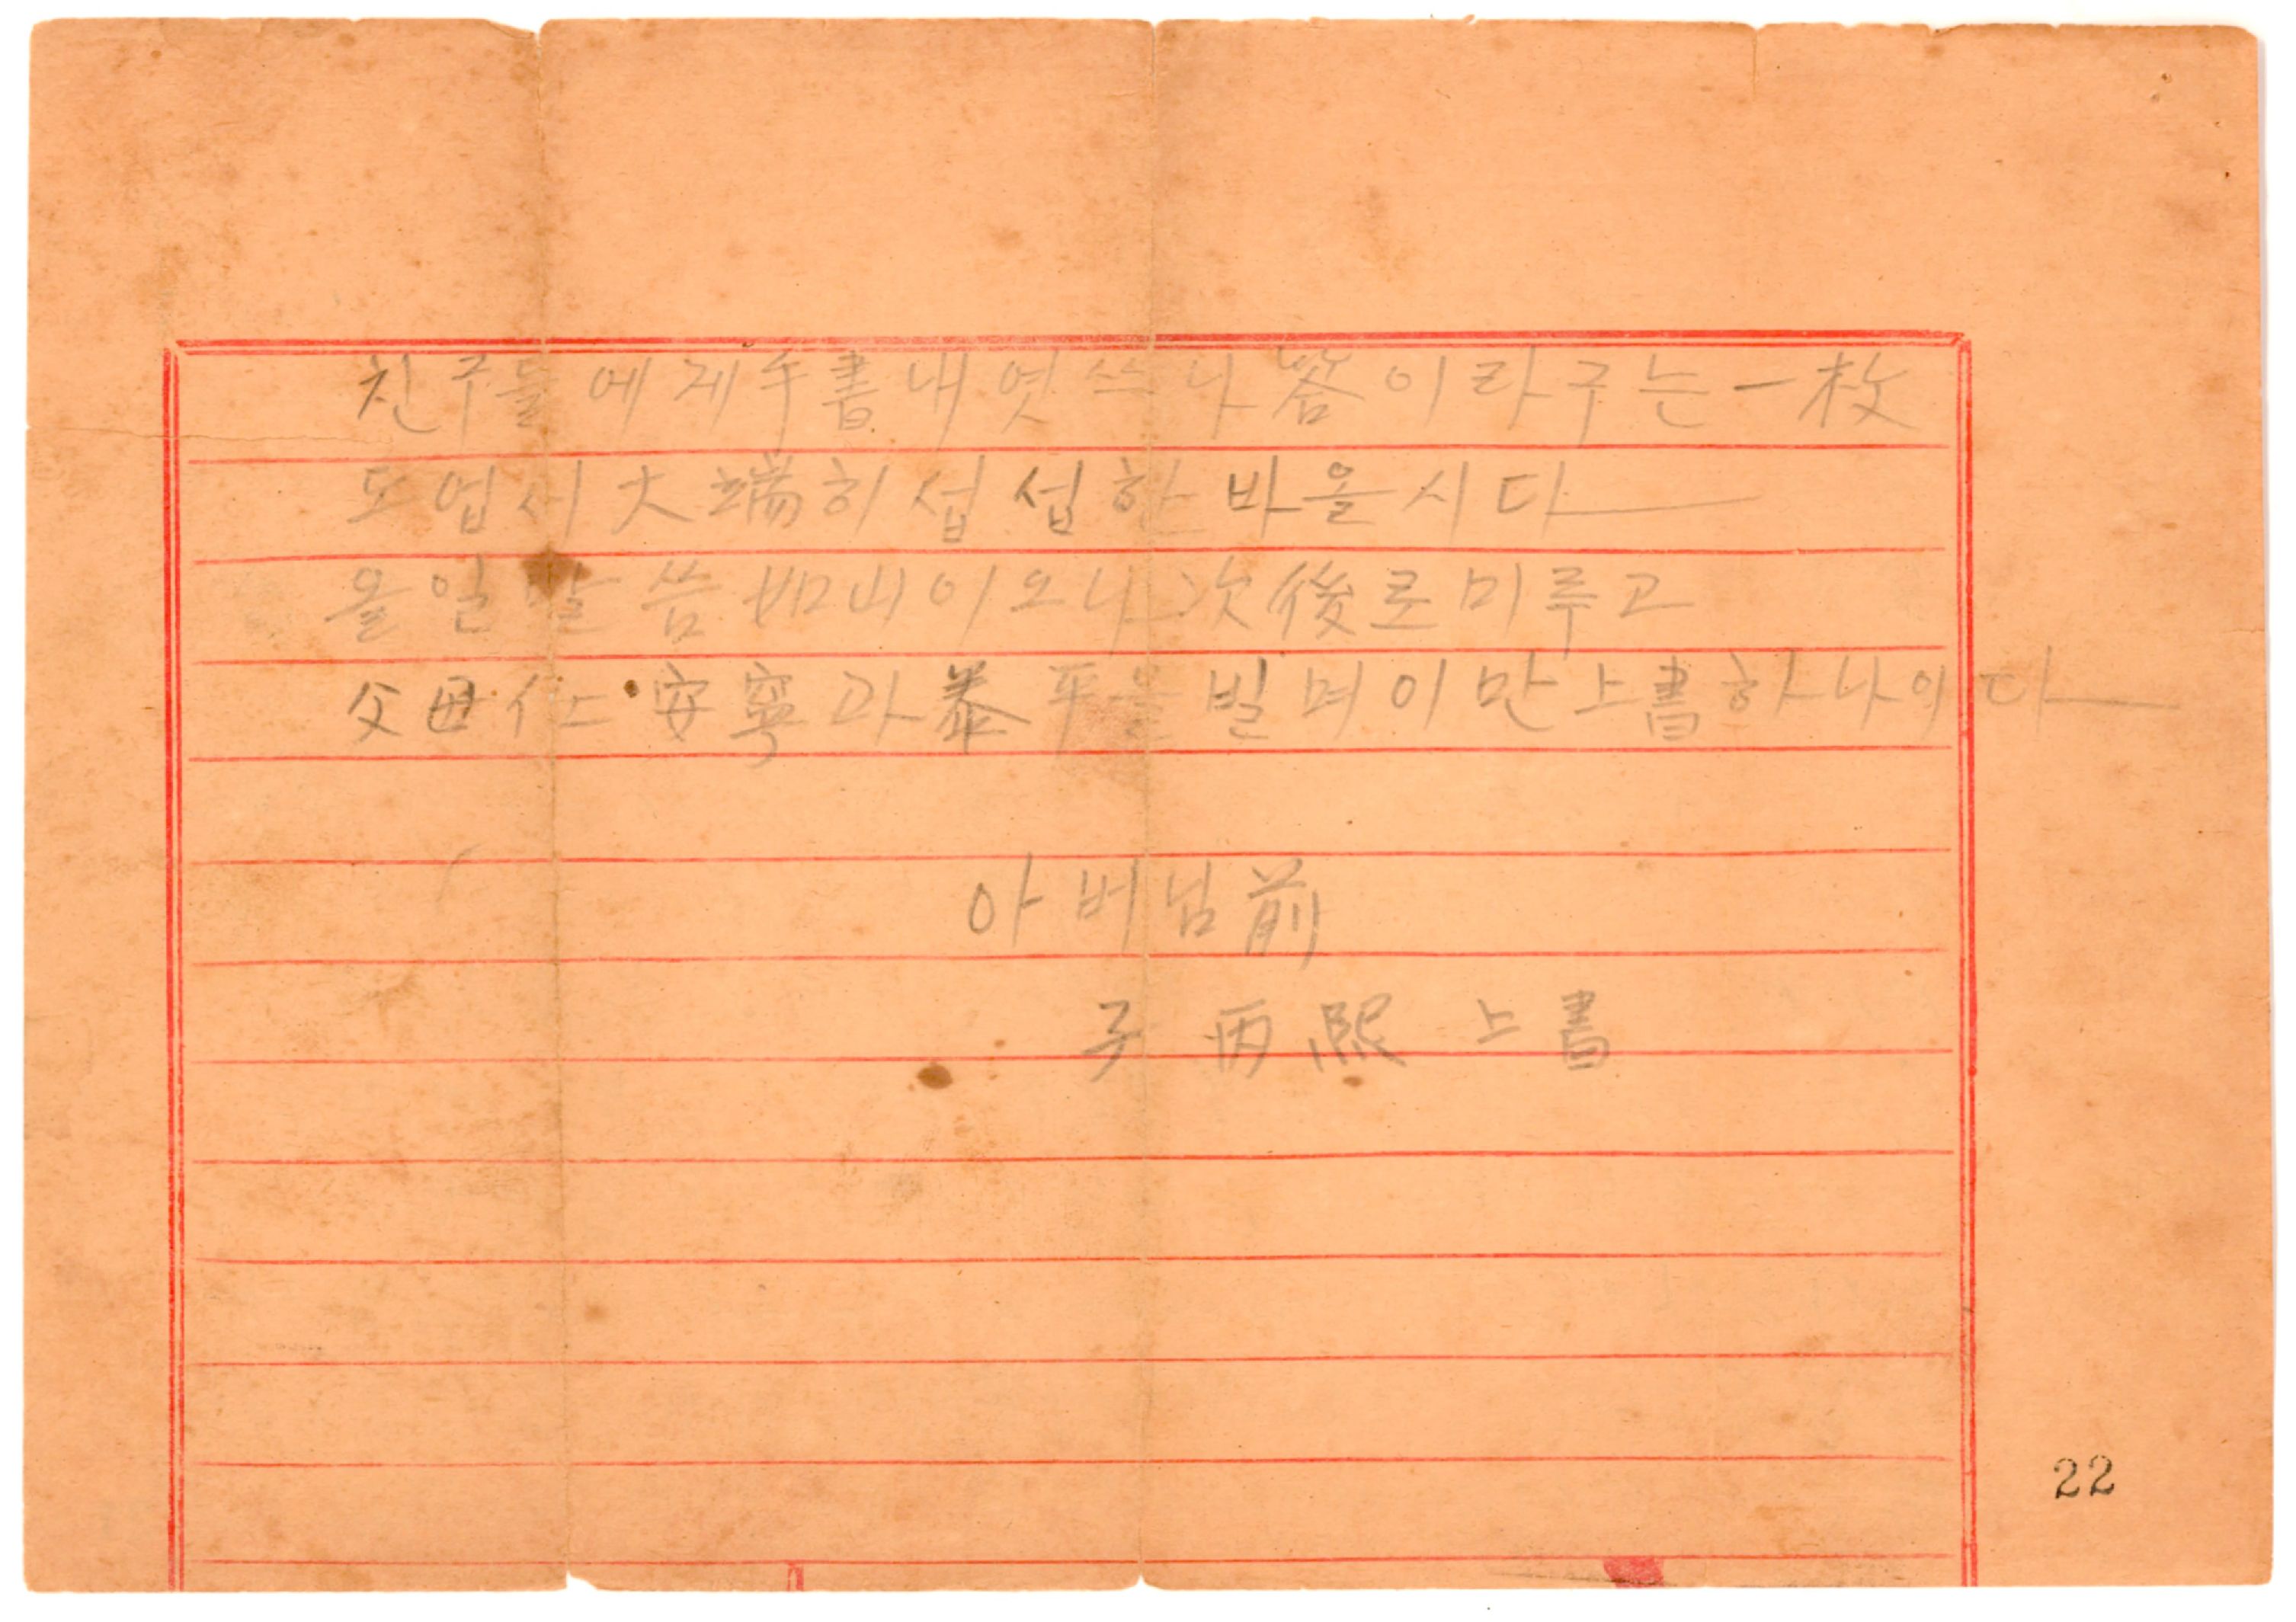 친구들에게 手書내엿쓰나 答이라구는 一枚
도 업서 大端히 섭섭한 바올시다
올일 말씀 如山이오나 次後로 미루고
父母 安寧과 泰平을 빌며 이만 上書하나이다
아버님 前
子 丙熙 上書
22